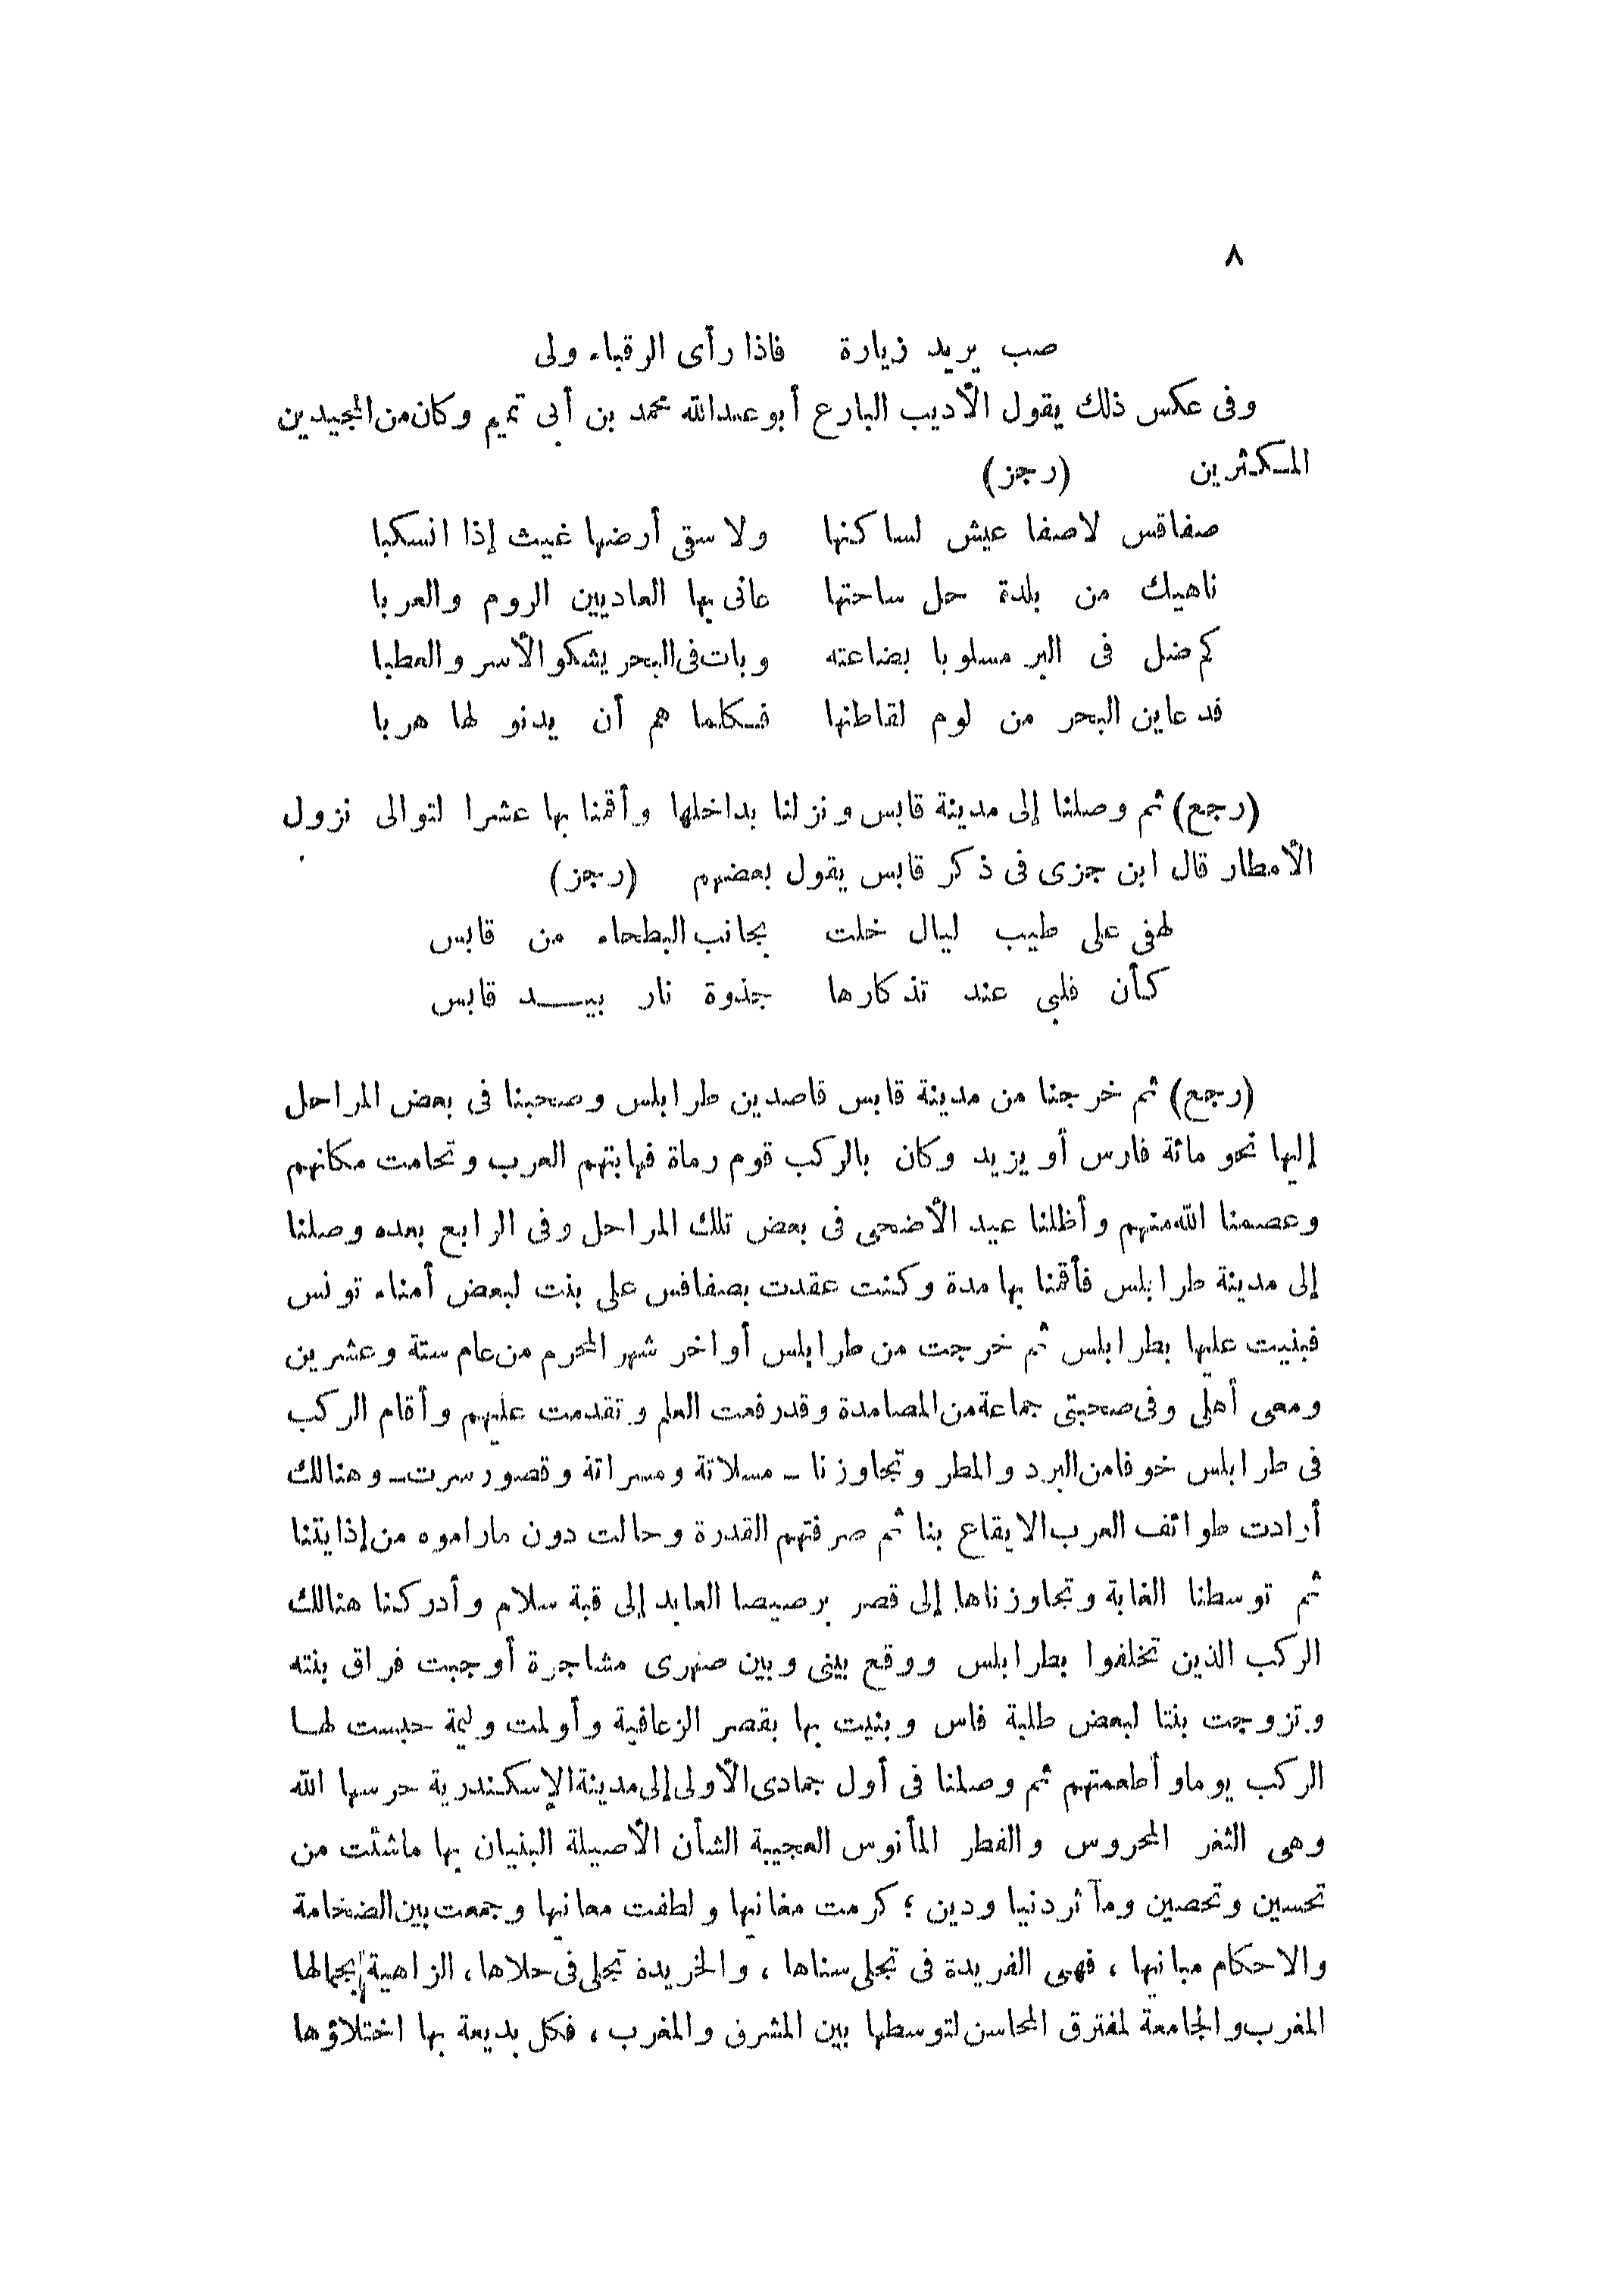 ٨
صب يريد زيارة فاذا رأى الرقباء ولى
وفى عكس ذلك يقول الأديب البارع أبو عبدالله محمد بن أبى تميم وكان من المجيدين
المكثرين (رجز)
صفاقس لاصفا عيش لساكنها ولا سقى أرضها غيث إذا انسكبا
ناهيك من بلدة حل ساحتها عانى بها العاديين الروم والعربا
كم ضل فى البر مسلوبا بضاعته وبات فى البحر يشكو الأسر والعطبا
قد عاين البحر من لوم لقاطنها فكلما هم أن يدنو لها هربا
(رجع) ثم وصلنا إلى مدينة قابس ونزلنا بداخلها وأقمنا بها عشرا لتوالى نزول
الأمطار قال ابن جزى فى ذكر قابس يقول بعضهم (رجز)
لهفى على طيب ليال خلت بجانب البطحاء من قابس
كأن قلبى عند تذكارها جذوة نار بيد قابس
(رجع) ثم خرجنا من مدينة قابس قاصدين طرابلس وصحبنا فى بعض المراحل
إليها نحو مائة فارس أو يزيد وكان بالركب قوم رماة فهابتهم العرب وتحامت مكانهم
وعصمنا الله منهم وأظلنا عيد الأضحى فى بعض تلك المراحل وفى الرابع بعده وصلنا
إلى مدينة طرابلس فأقمنا بها مدة وكنت عقدت بصفاقس على بنت لبعض أمناء تونس
فبنيت عليها بطرابلس ثم خرجت من طرابلس أواخر شهر المحرم من عام ستة وعشرين
ومعى أهلى وفى صحبتى جماعة من المصامدة وقد رفعت العلم وتقدمت عليهم وأقام الركب
فى طرابلس خوفا من البرد والمطر وتجاوزنا ــ مسلاتة ومسراتة وقصور سرت ــ وهنالك
أرادت طوائف العرب الايقاع بنا ثم صرفتهم القدرة وحالت دون ماراموه من إذايتنا
ثم توسطنا الغابة وتجاوزناها إلى قصر برصيصا العابد إلى قبة سلام وأدركنا هنالك
الركب الذين تخلفوا بطرابلس ووقع بينى وبين صهرى مشاجرة أوجبت فراق بنته
وتزوجت بنتا لبعض طلبة فاس وبنيت بها بقصر الزعافية وأولمت وليمة حبست لها
الركب يوما وأطعمتهم ثم وصلنا فى أول جمادى الأولى إلى مدينة الإسكندرية حرسها الله
وهى الثغر المحروس والقطر المأنوس العجيبة الشأن الأصيلة البنيان بها ماشئت من
تحسين وتحصين ومآثر دنيا ودين ؛ كرمت مغانيها ولطفت معانيها وجمعت بين الضخامة
والاحكام مبانيها ، فهى الفريدة فى تجلى سناها ، والخريدة تجلى فى حلاها ، الزاهية بجمالها
المغرب والجامعة لمفترق المحاسن لتوسطها بين المشرق والمغرب ، فكل بديعة بها اختلاؤها